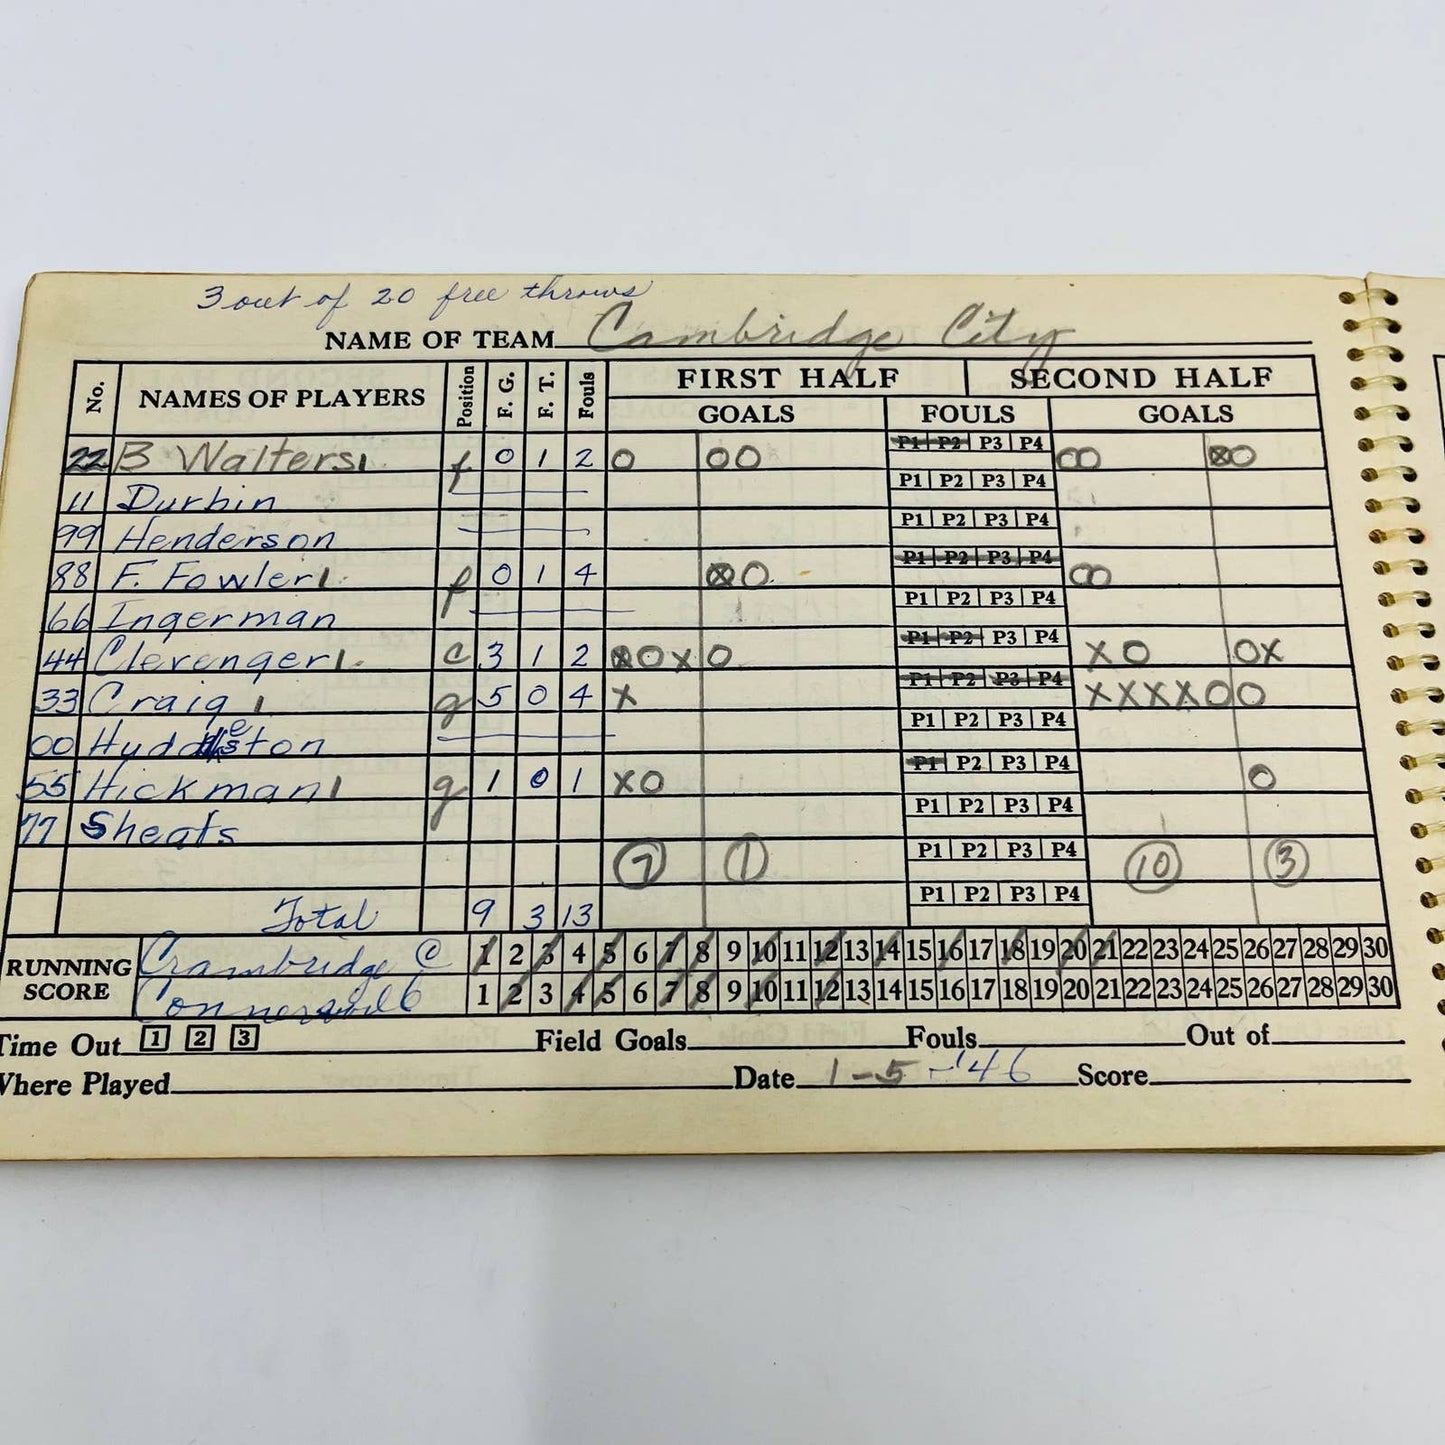 3 out of 20 free throws
NAME OF TEAM Cambridge City
No. NAMES OF PLAYERS Position F. G. F. T. Fouls FIRST HALF SECOND HALF
GOALS FOULS GOALS
22 B Walters 1 f 0 1 2 O OO P1 P2 P3 P4 OO ⊗O
11 Durbin P1 P2 P3 P4
99 Henderson P1 P2 P3 P4
88 F. Fowler 1 f 0 1 4 ⊗O P1 P2 P3 P4 OO
66 Ingerman P1 P2 P3 P4
44 Clevenger 1 c 3 1 2 ⊗OX O P1 P2 P3 P4 XO OX
33 Craig 1 g 5 0 4 X P1 P2 P3 P4 XXXXOO
00 Huddleston P1 P2 P3 P4
55 Hickman 1 g 1 0 1 XO P1 P2 P3 P4 O
77 Sheats P1 P2 P3 P4
7 1 P1 P2 P3 P4 10 3
Total 9 3 13 P1 P2 P3 P4
RUNNING SCORE
Crambridge C 1 2 3 4 5 6 7 8 9 10 11 12 13 14 15 16 17 18 19 20 21 22 23 24 25 26 27 28 29 30
1 2 3 4 5 6 7 8 9 10 11 12 13 14 15 16 17 18 19 20 21 22 23 24 25 26 27 28 29 30
Time Out 1 2 3 Field Goals Fouls Out of
Where Played Date 1-5-'46 Score